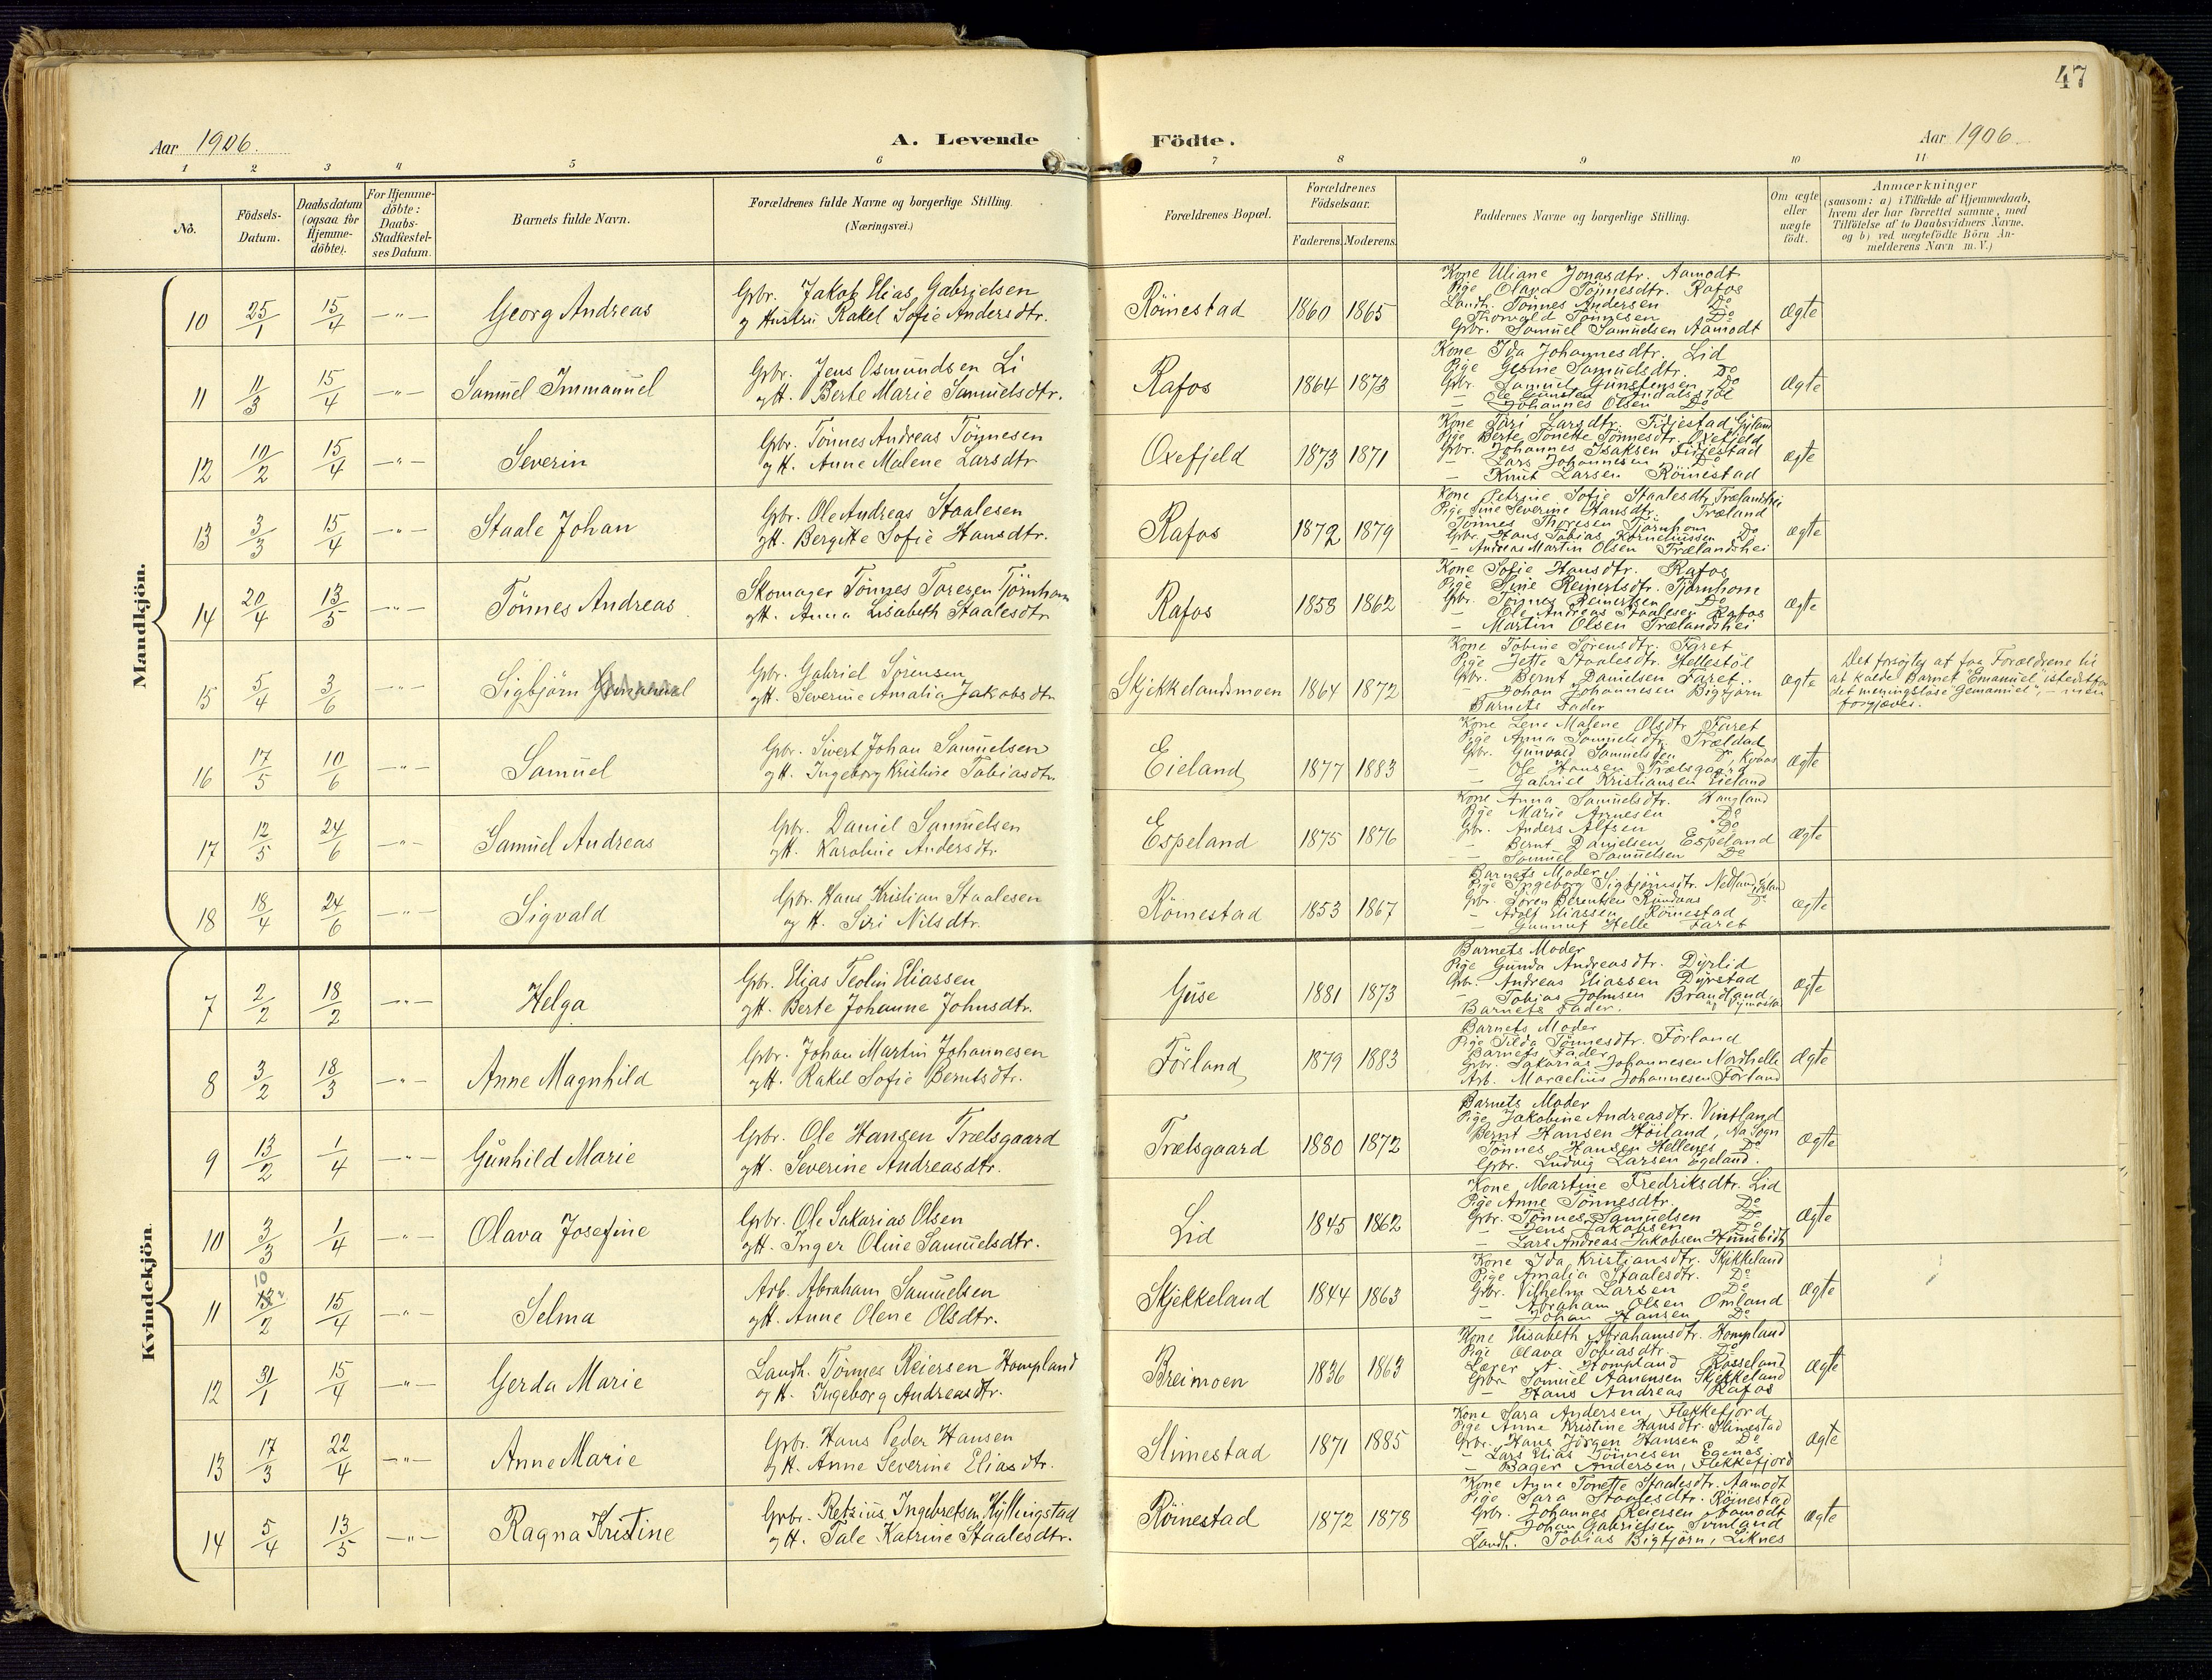 47
Aar 1906.
A. Levende Födte.
Aar 1906
1 2 3 4 5 6 7 8 9 10 11
No.
Födsels-Datum.
Daabsdatum (ogsaa for Hjemmedöbte).
For Hjemmedöbte: Daabs-Stadfæstelses Datum.
Barnets fulde Navn.
Forældrenes fulde Navne og borgerlige Stilling.
(Næringsvei.)
Forældrenes Bopæl.
Forældrenes Födselsaar.
Faderens. Moderens.
Faddernes Navne og borgerlige Stilling.
Om ægte eller uægte födt.
Anmærkninger
(saasom: a) i Tilfælde af Hjemmedaab, hvem der har forrettet samme, med Tilföielse af to Daabsvidners Navne, og b) ved uægtefödte Börn Anmelderens Navn m. V.)
Mandkjön.
10 25/1 15/4 —"— Georg Andreas
Gbr. Jakob Elias Gabrielsen
og Hustru Rakel Sofie Andersdtr.
Röinestad 1860 1865
Kone Uliane Jonasdtr. Aamodt
Pige Olava Tönnesdtr. Rafos
Landh. Tönnes Andersen Do
Thorvald Tönnesen Do
Gbr. Samuel Samuelsen Aamodt
Ægte
11 11/3 15/4 —"— Samuel Immanuel
Gbr. Jens Osmundsen Li
og H. Berte Marie Samuelsdtr.
Rafos 1864 1873
Kone Ida Johannesdtr. Lid
Pige Gesine Samuelsdtr. Do
Gbr. Samuel Gunstensen Do
— Ole Gunsten Andalsstöl
— Johannes Olsen Do
Ægte
12 10/2 15/4 —"— Severin
Gbr. Tönnes Andreas Tönnesen
og H. Anne Malene Larsdtr
Oxefjeld 1873 1871
Kone Lari Larsdtr. Fidjestad, Gyland
Pige Berte Tonette Tönnesdtr. Oxefjeld
Gbr. Johannes Isaksen Fidjestad
— Lars Johannesen Do
— Knut Larsen Röinestad
Ægte
13 3/3 15/4 —"— Staale Johan
Gbr. Ole Andreas Staalesen
og H. Bergitte Sofie Hansdtr.
Rafos 1872 1879
Kone Petrine Sofie Staalesdtr. Trælandshei
Pige Sine Severine Hansdtr. Træland
Tönnes Thoresen Tjörnhom
Gbr. Hans Tobias Korneliussen Do
— Andreas Martin Olsen Trælandshei
Ægte
14 20/4 13/5 —"— Tönnes Andreas
Skomager Tönnes Toresen Tjörnhom
og H. Anna Lisabeth Staalesdtr
Rafos 1858 1862
Kone Sofie Hansdtr. Rafos
Pige Sine Reinertsdtr. Tjörnhom
Gbr. Tönnes Reinertsen Do
— Ole Andreas Staalesen Rafos
— Martin Olsen Trælandshei
Ægte
15 5/4 3/6 —"— Sigbjörn Gemanuel
Gbr. Gabriel Sörensen
og H. Severine Amalia Jakobsdtr
Skjekkelandsmoen 1864 1872
Kone Tobine Sörensdtr. Faret
Pige Jette Staalesdtr. Hellestöl
Gbr. Bernt Danielsen Faret
— Johan Johannesen Bigtjörn
Barnets Fader
Ægte
Det forsögtes at faa Forældrene til
at kalde Barnet "Emanuel" istedetfor
det meningslöse "Gemanuel", — men
forgjæves.
16 17/5 10/6 —"— Samuel
Gbr. Sivert Johan Samuelsen
og H. Ingeborg Kristine Tobiasdtr
Eieland 1877 1883
Kone Lene Malene Olsdtr Faret
Pige Anna Samuelsdtr. Trældad
Gbr. Gunvald Samuelsen Do,
— Ole Hansen Trælsgaard
— Gabriel Kristiansen Eieland
Ægte
17 12/5 24/6 —"— Samuel Andreas
Gbr. Daniel Samuelsen
og H. Karoline Andersdtr.
Espeland 1875 1876
Kone Anna Samuelsdtr. Haugland
Pige Marie Do
Gbr. Anders Alfsen Do
— Bernt Danielsen Espeland
— Samuel Samuelsen Do
Ægte
18 18/4 24/6 —"— Sigvald
Gbr. Hans Kristian Staalesen
og H. Siri Nilsdtr.
Röinestad 1853 1867
Barnets Moder
Pige Ingeborg Sigbjörnsdtr. Netland,
Gbr. Sören Berentsen Do
— Adolf Eliassen Röinestad
— Gunnuf Helle Faret
Ægte
Kvindekjön
7 2/2 18/2 —"— Helga
Gbr. Elias Teolin Eliassen
og H. Berte Johanne Johnsdtr.
Guse 1881 1873
Barnets Moder
Pige Gunda Andreasdtr. Dyrlid
Gbr. Andreas Eliassen Dyrstad
— Tobias Johnsen Brandland
Barnets Fader.
Ægte
8 3/2 18/3 —"— Anne Magnhild
Gbr. Johan Martin Johannesen
og H. Rakel Sofie Berntsdtr.
Förland 1879 1883
Barnets Moder
Pige Tilda Tönnesdtr. Förland
Barnets Fader
Gbr. Sakarias Johannesen Nordhelle
Arb. Marcelius Johannesen Förland
Ægte
9 13/2 1/4 —"— Gunhild Marie
Gbr. Ole Hansen Trælsgaard
og H. Severine Andreasdtr.
Trælsgaard 1880 1872
Barnets Moder
Pige Jakobine Andreasdtr. Vintland
Bernt Hansen Höiland, Næs Sogn
Tönnes Hansen Hellenes Do
Gbr. Ludvig Larsen Egeland.
Ægte
10 3/3 1/4 —"— Olava Josefine
Gbr. Ole Sakarias Olsen
og H. Inger Oline Samuelsdtr.
Lid 1845 1862
Kone Martine Fredriksdtr. Lid
Pige Anne Tönnesdtr. Do
Gbr. Tönnes Samuelsen Do
— Jens Jakobsen Do
— Lars Andreas Jakobsen
Ægte
11 10/2 15/4 —"— Selma
Arb. Abraham Samuelsen
og H. Anne Olene Olsdtr.
Skjekkeland 1844 1863
Kone Ida Kristiansdtr. Skjekkeland
Pige Amalia Staalesdtr. Do
Gbr. Vilhelm Larsen Do
— Abraham Olsen Omland
— Johan Hansen Do
Ægte
12 31/1 15/4 —"— Gerda Marie
Landh. Tönnes Reiersen Hompland
og H. Ingeborg Andreasdtr.
Breimoen 1836 1863
Kone Elisabeth Abrahamsdtr. Hompland
Pige Olava Tobiasdtr. Do
Lærer A. Hompland Rosseland
Gbr. Samuel Aanensen Skjekkeland
— Hans Andreas Rafos
Ægte
13 17/3 22/4 —"— Anne Marie
Gbr. Hans Peder Hansen
og H. Anne Severine Eliasdtr.
Slimestad 1871 1885
Kone Sara Andersen, Flekkefjord
Pige Anne Kristine Hansdtr. Slimestad
Gbr. Hans Jörgen Hansen Do
— Lars Elias Tönnesen Egenes
— Bager Andersen, Flekkefjord
Ægte
14 5/4 13/5 —"— Ragna Kristine
Gbr. Retzius Ingebretsen Kyllingstad
og H. Tale Katrine Staalesdtr.
Röinestad 1872 1878
Kone Anne Tonette Staalesdtr. Aamodt
Pige Sara Staalesdtr. Röinestad
Gbr. Johannes Reiersen Aamodt
— Johan Gabrielsen Svindland
Landh. Tobias Bigtjörn, Liknes
Ægte